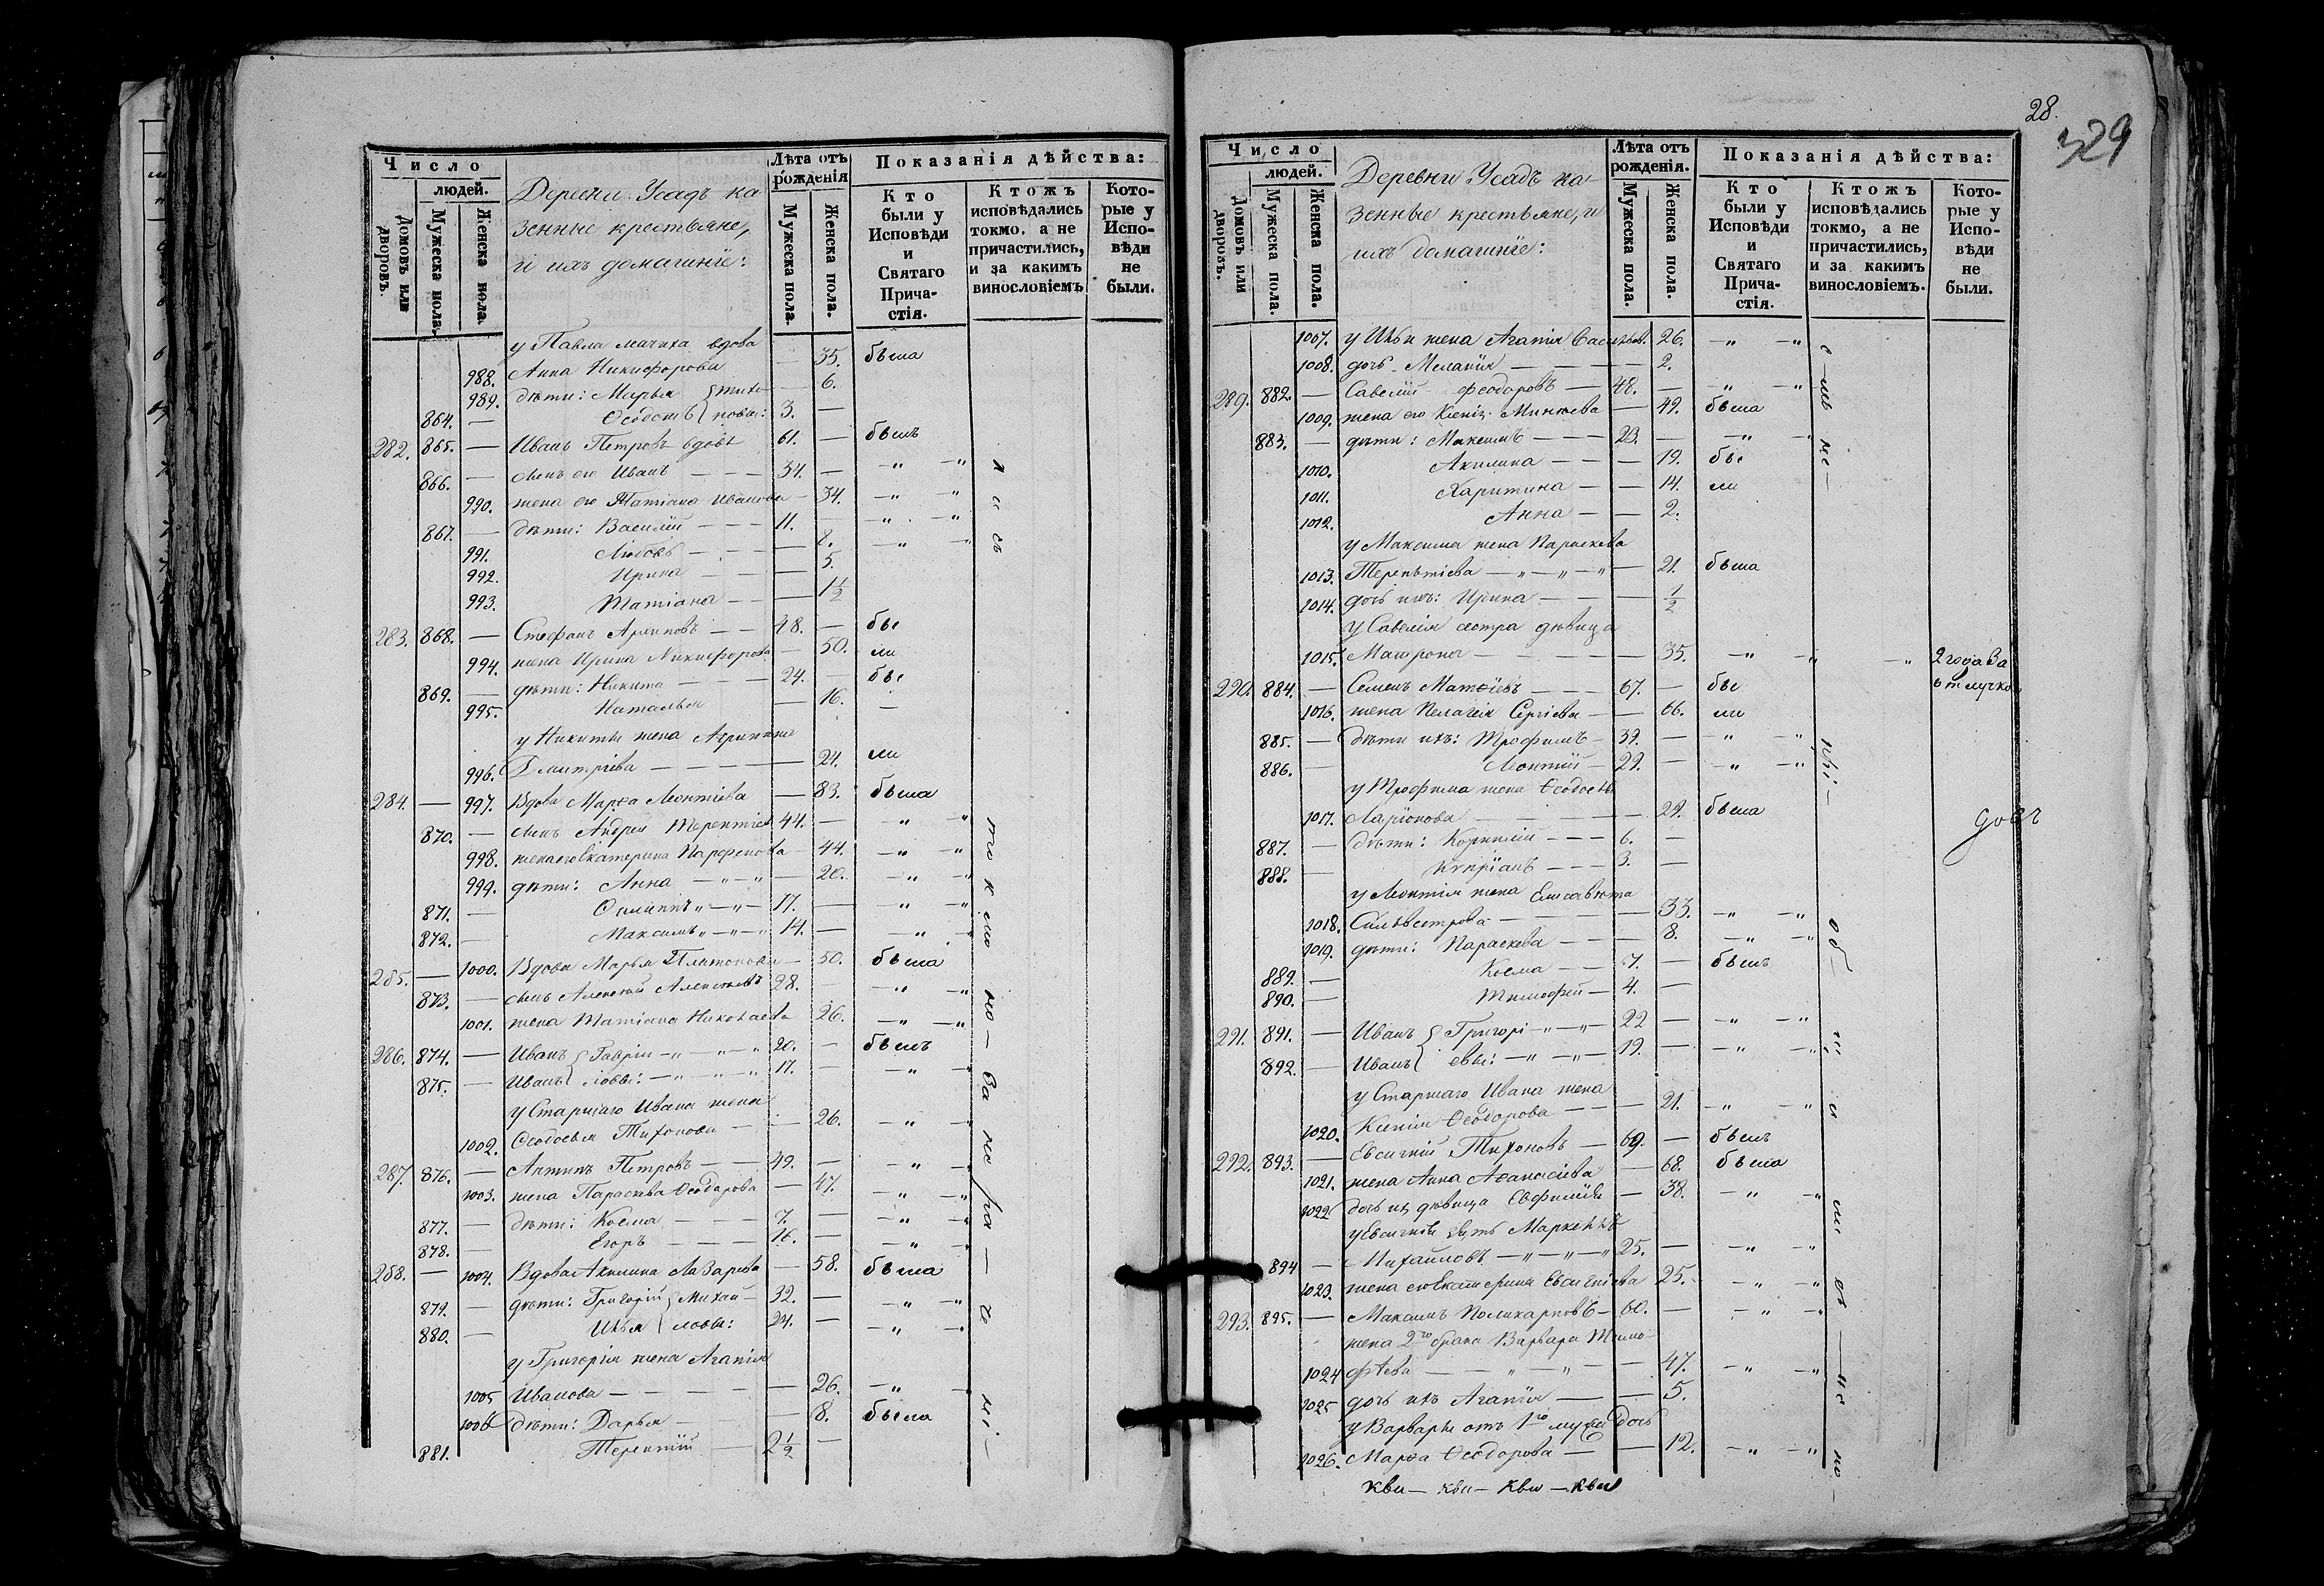 Число
людей.
Домовъ или дворовъ.
Мужеска пола.
Женска пола.
Деревни Усадъ ка
зенные крестьяне,
и ихъ домашніе:
Лѣта отъ рожденія
Мужеска пола.
Женска пола.
Показанія дѣйства:
Кто были у Исповѣди и Святаго Прича-стія.
Ктожъ исповѣдались токмо, а не причастились, и за какимъ винословіемъ
Кото-рые у Испо-вѣди не были.
у Павла мачиха вдова
988. Анна Никифорова — 35. была
989. дѣти: Марья { Тихо — 6.
864. — Ѳеодотъ { новы: 3. —
282. 865. — Иванъ Петровъ вдовъ 61. — былъ
866. — сынъ его Иванъ — — — 34. — — „ — „
990. жена его Татіана Иванова — 34. — „ — „
867. — дѣти: Василій — — — 11. — „ — „
991. Любовь — — — 8. — „ — „
992. Ирина — — — 5.
993. Татіана — — — 1 1/2
283. 868. — Стефанъ Архиповъ — — 28. — бы
994. жена Ирина Никифорова — 50. ли
869. — дѣти: Никита — — — 24. — бы
995. Наталья — 16. —
у Никиты жена Агрипина
996. Дмитріева — — — — 24. ли
284. — 997. Вдова Марѳа Леонтіева — 83. была
870. — сынъ Андрей Терентіев 44. — — „ — „
998. жена его Екатерина Парфенова — 44. — „ — „
999. дѣти: Анна — „ — „ — 20. — „ — „
871. — Филиппъ „ — „ — 17. — — „ — „
872. — Максимъ „ — „ — „ 14. — — „ — „
285. — 1000. Вдова Марья Платонова — 50. была
873. — сынъ Алексѣй Алексѣевъ 28. — — „ — „
1001. жена Татіана Николаева 26. — „ — „
286. 874. — Иванъ { Гаврі — „ — „ — „ 20. — былъ
875. — Иванъ { ловы: — „ — „ — „ 17. — — „ — „
у Старшаго Ивана жена
1002. Ѳеодосья Тихонова — — 26. — „ — „
287. 876. — Антипъ Петровъ — — 49. — — „ — „
1003. жена Параскева Ѳеодорова — 47. — „ — „
877. — дѣти: Косма — — — 7. — — „ — „
878. — Егоръ — — — 16. — — „ — „
288. — 1004. Вдова Акилина Лазарева — 58. была
879. — дѣти: Григорій { Михай — 32. — — „ — „
880. — Илья { ловы: 24. — — „ — „
у Григорія жена Агапія
1005 Иванова — — — — — 26. — „ — „
1006 дѣти: Дарья — — 8. была
881. Терентій — 2 1/2 —
28.
329
Число
людей.
Домовъ или дворовъ.
Мужеска пола.
Женска пола.
Деревни Усадъ ка-
зенные крестьяне, и
ихъ домашніе:
Лѣта отъ рожденія.
Мужеска пола.
Женска пола.
Показанія дѣйства:
Кто были у Исповѣди и Святаго Прича-стія.
Ктожъ исповѣдались токмо, а не причастились, и за какимъ винословіемъ.
Кото-рые у Испо-вѣди не были.
1007. у Ильи жена Агапія Васильев. 26. — „ — „
1008. дочь Меланія — — — — 2.
289. 882. — Савелій Феодоровъ — 48. — — „ — „
1009. жена его Ксенія Минаева — 49. была
883. — дѣти: Максимъ — — — 23. — — „ —
1010. Акилина — — — 19. бы
1011. Харитина — — 14. ли
1012. Анна — — 2.
у Максима жена Параскева
1013. Терентіева — „ — „ — „ — 21. была
1014. дочь ихъ: Ирина — — — 1/2
у Савелія сестра дѣвица
1015. Матрона — — — — — 35. — „ — „ — „ 2 года въ отлучкѣ
290. 884. — Семенъ Матѳіевъ — — — 67. — бы
1016. жена Пелагія Сергіева — — 66. ли
885. — дѣти ихъ: Трофимъ — 39. — — „ — „
886. — Леонтій — 29. — — „ — „
у Трофима жена Ѳеодосья
1017. Ларіонова — — — — — 29. была
887. — дѣти: Корнилій — — — 6. —
888. — Кѵпріанъ — — — 3. —
у Леонтія жена Елисавета
1018. Сильвестрова — — — — 33. — „ — „
1019. дѣти: Параскева — — — 8. — „ — „
889. — Косма — — 7. — былъ
890. — Тимофей — 4. —
291. 891. — Иванъ { Григорі — „ — „ — 22 — — „ — „
892. — Иванъ { евы: — „ — „ — 19. — — „ — „
у Старшаго Ивана жена
1020. Ксенія Ѳеодорова — — — 21. — „ — „
292. 893. — Евсигній Тихоновъ — 69. — былъ
1021. жена Анна Аѳанасіева — 68. была
1022 дочь их дѣвица Евфимія — 38. — „ — „
у Евсигнія зять Маркеллъ
894 — Михайловъ — „ — „ — „ 25. — — „ — „
1023. жена его Екатерина Евсигніева 25. — „ — „
293. 895. — Максимъ Поликарповъ — 60. — — „ — „
жена 2го брака Варвара Тимо-
1024 фѣева — — „ — „ — — 47. — „ — „
1025 дочь ихъ Агапія — — 5.
у Варвары отъ 1го мужа дочь
1026. Марѳа Ѳеодорова — — 12. — „ — „